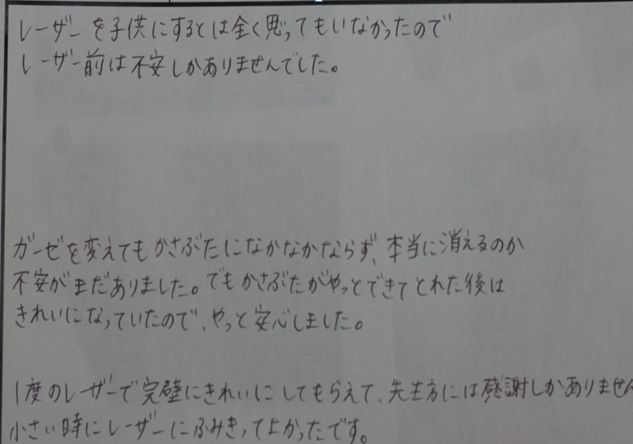 レーザーを子供にするとは全く思ってもいなかったので
レーザー前は不安しかありませんでした。
ガーゼを変えてもかさぶたになかなかならず、本当に消えるのか
不安がまだありました。でもかさぶたがやっとできてとれた後は
きれいになっていたので、やっと安心しました。
1度のレーザーで完壁にきれいにしてもらえて、先生方には感謝しかありません
小さい時にレーザーにふみきってよかったです。